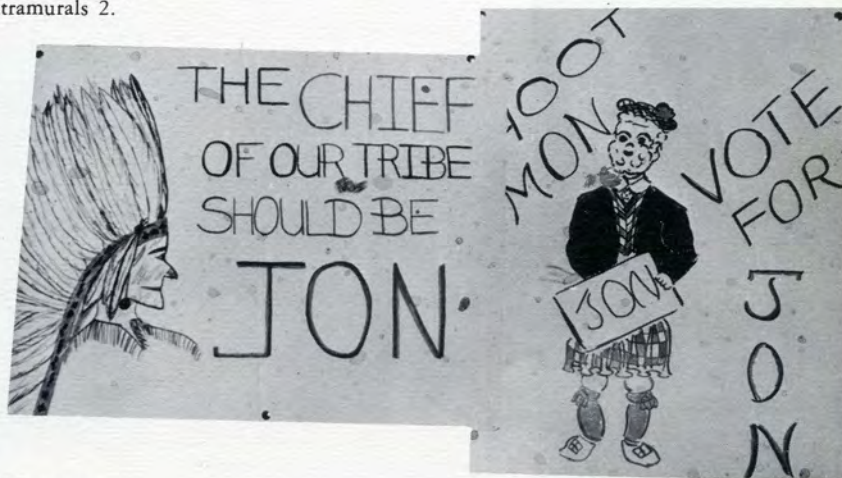 tramurals 2.
THE CHIEF
OF OUR TRIBE
SHOULD BE
JON
HOOT
MON
VOTE
FOR
JON
JON